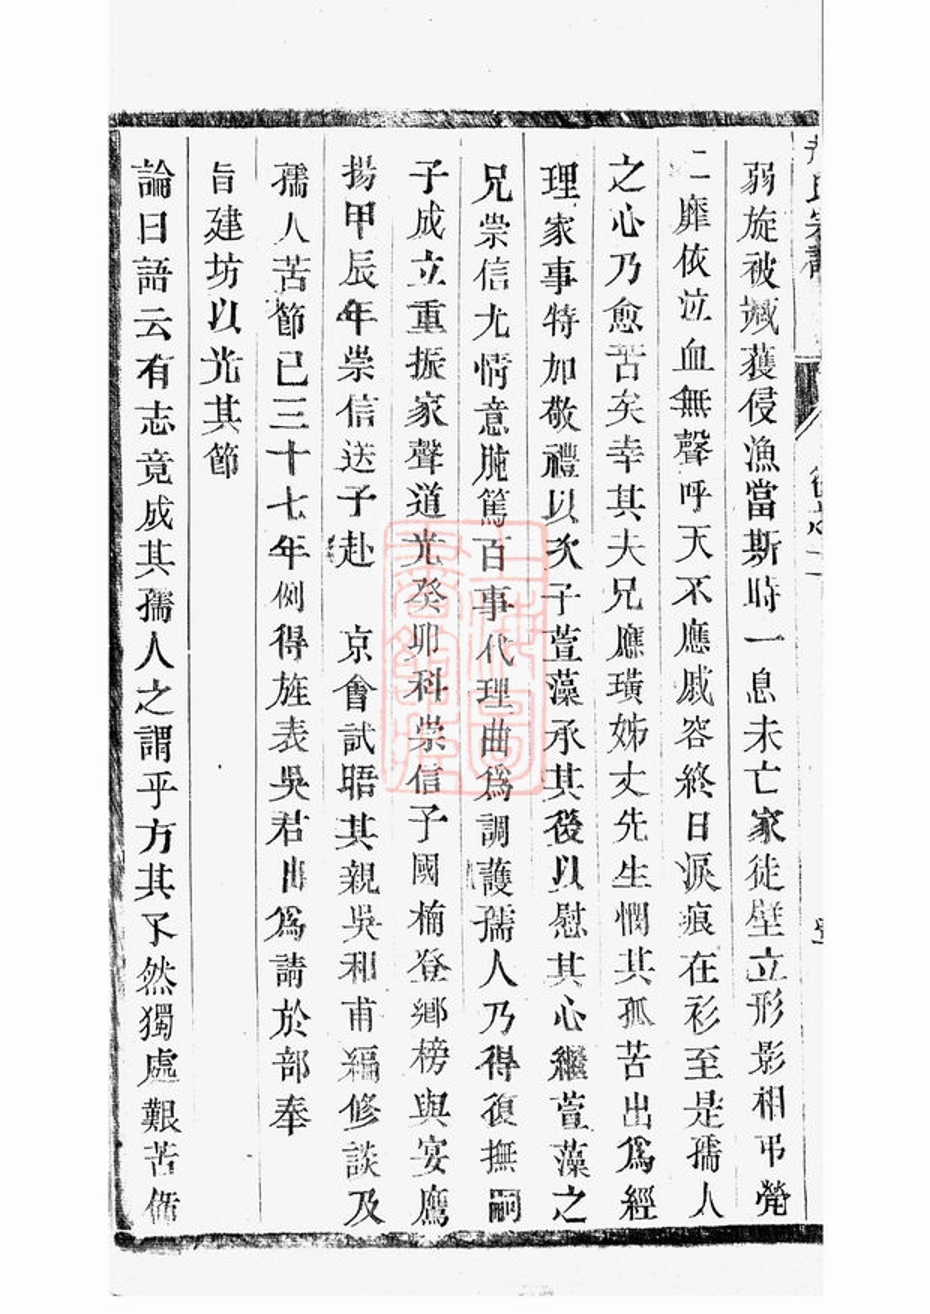 弱旋被臧蒦侵漁當斯時一息未亡家徒壁立形影相弔煢
二靡依泣血無聲呼天不應戚容終日淚痕在衫至是孺人
之心乃愈苦矣幸其夫兄應璜姊丈先生憫其孤苦出爲經
理家事特加敬禮以次子萱藻承其後以慰其心繼萱藻之
兄崇信尤情意肫篤百事代理曲爲調護孺人乃得復撫嗣
子成立重振家聲道光癸卯科崇信子國楠登鄉榜與宴鷹
揚甲辰年崇信送子赴　京會試晤其親吳和甫編修談及
孺人苦節已三十七年例得旌表吳君出爲請於部奉
旨建坊以光其節
論曰語云有志竟成其孺人之謂乎方其孑然獨處艱苦備
上海圖書館藏